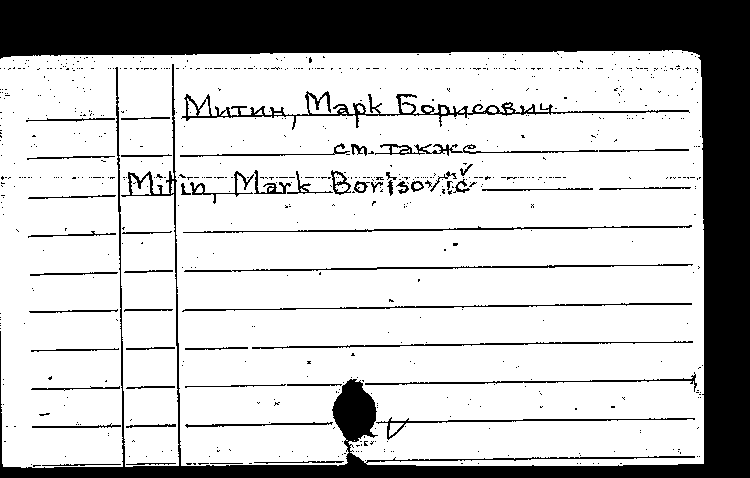 Митин, Марк Борисович
см. также
Mitin, Mark Borisovič